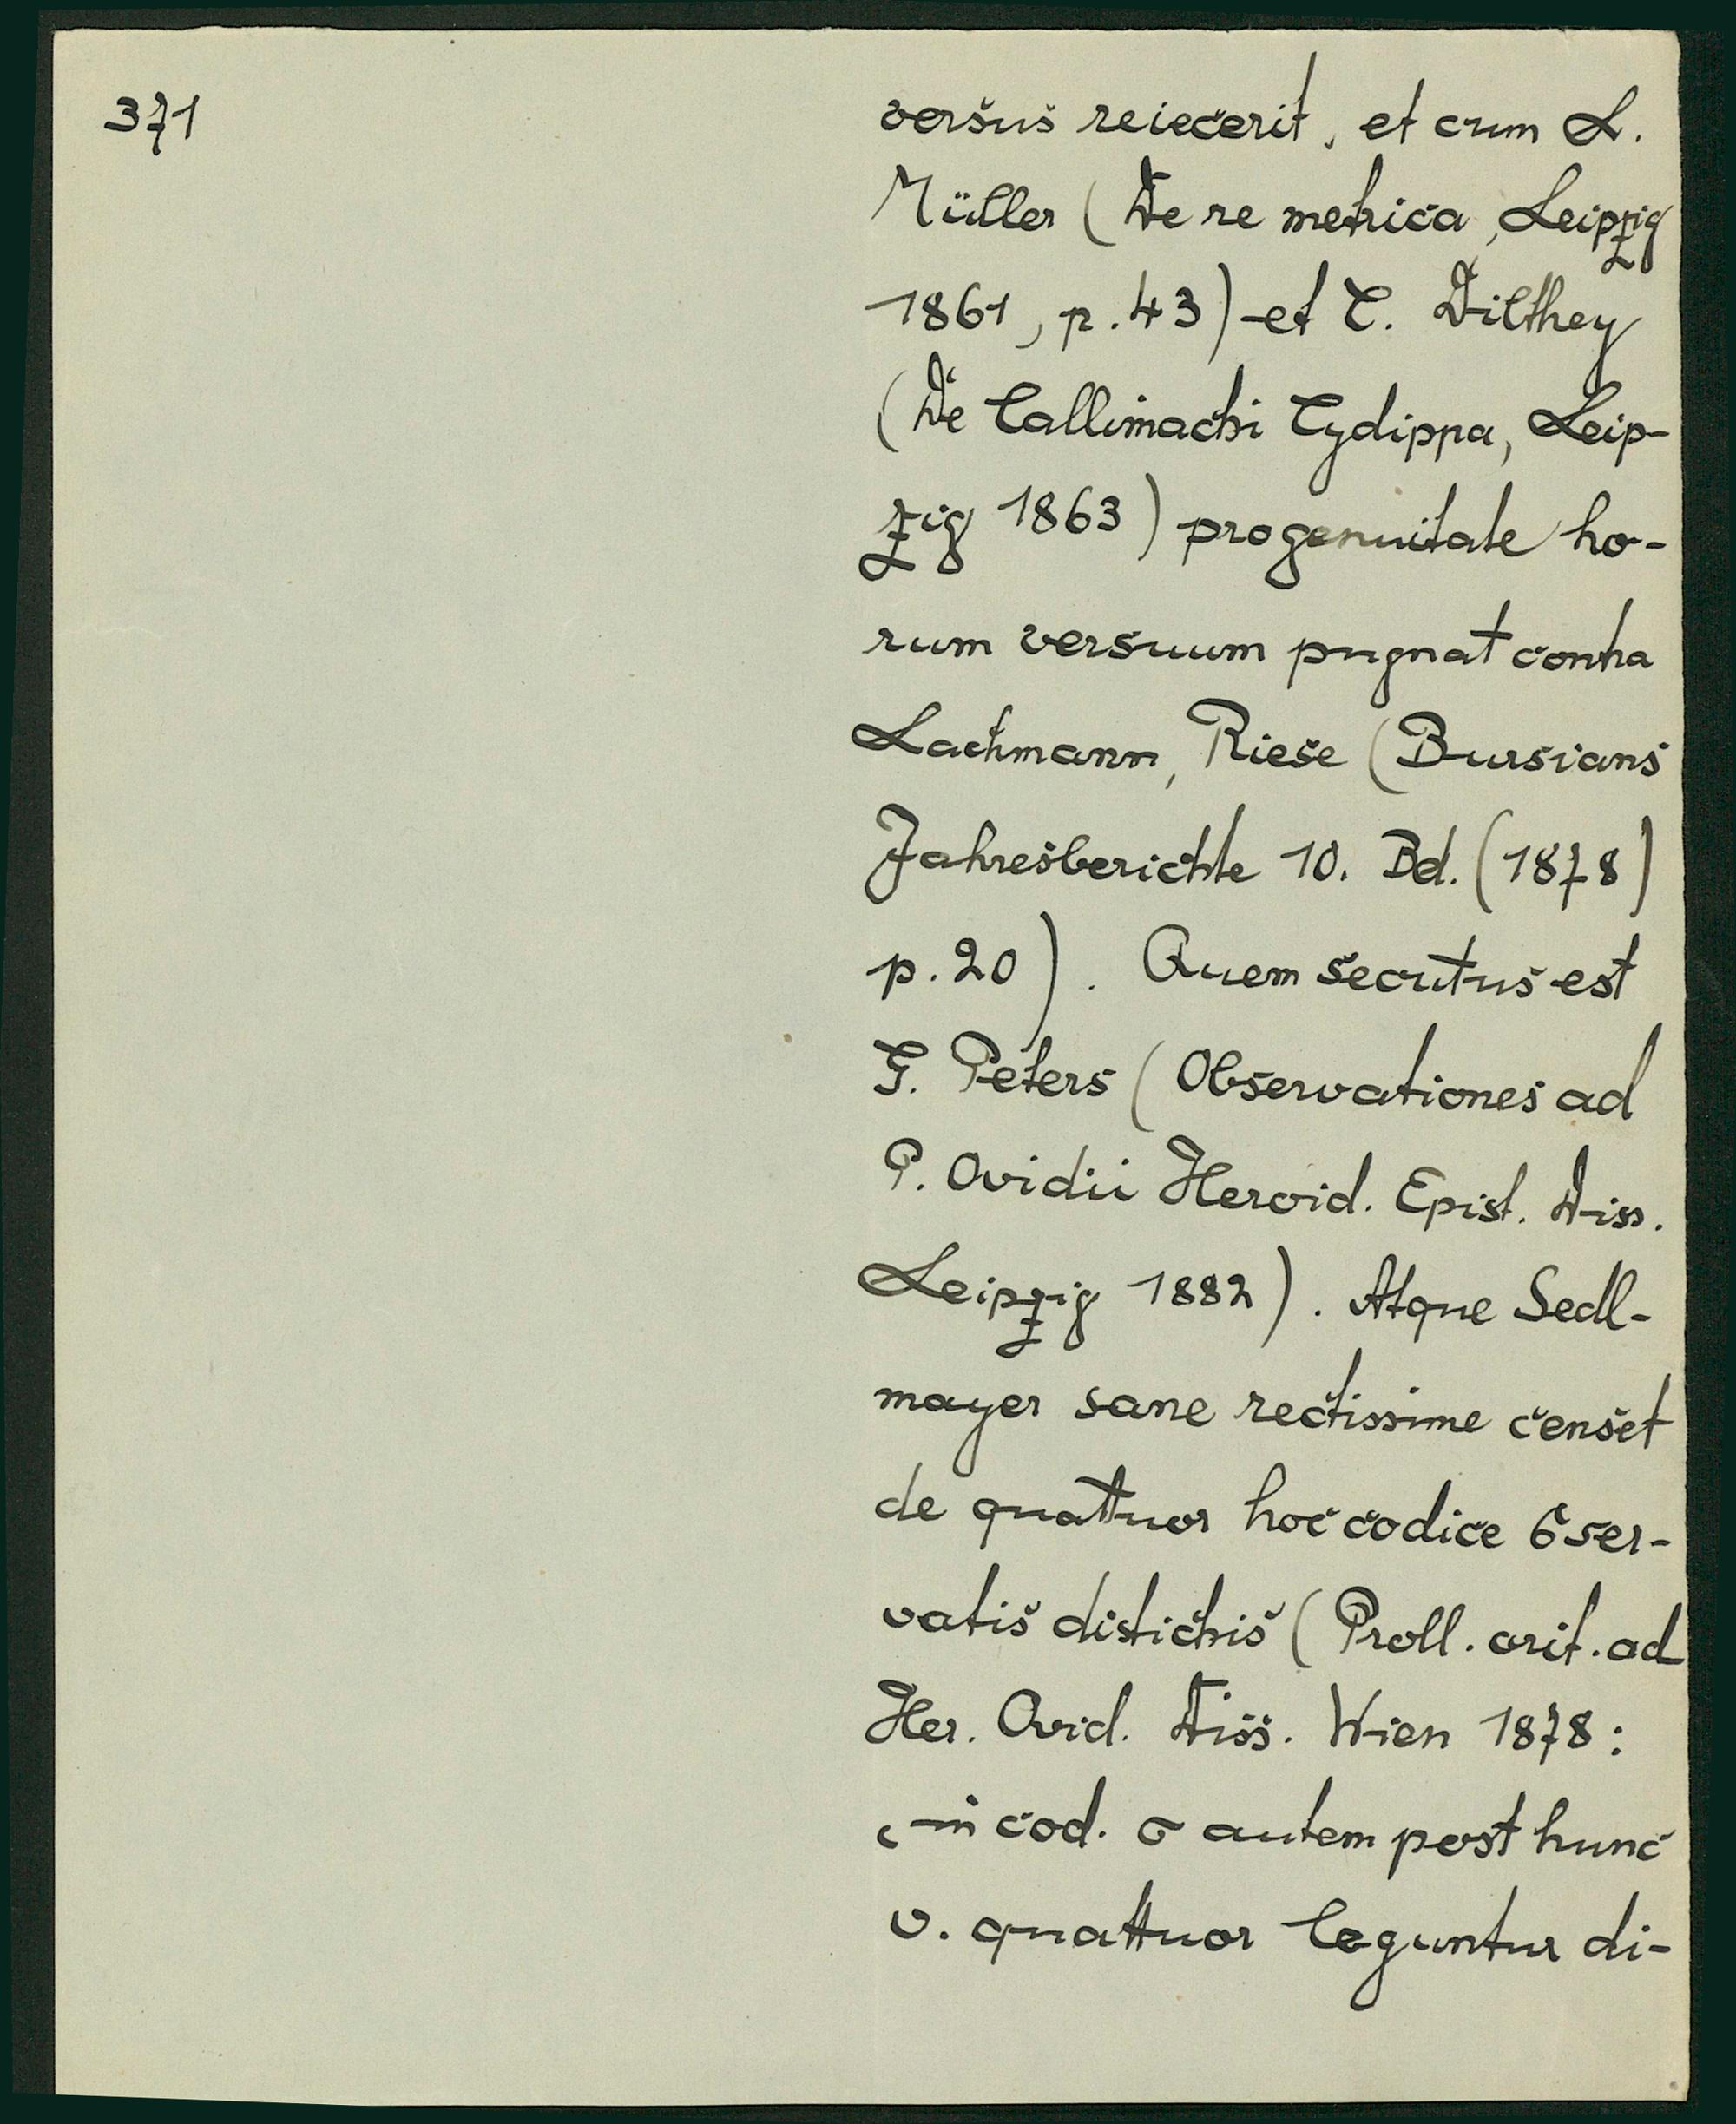 371
versus reiecerit, et cum L.
Müller (De re metrica, Leipzig
1861, p. 43) et C. Dilthey
(De Callimachi Cydippa, Leip-
zig 1863) pro genuitate ho-
rum versuum pugnat contra
Lachmann, Riese (Bursians
Jahresberichte 10. Bd. (1878)
p. 20). Quem secutus est
G. Peters (Observationes ad
P. Ovidii Heroid. Epist. Diss.
Leipzig 1882). Atque Sedl-
mayer sane rectissime censet
de quattuor hoc codice G ser-
vatis distichis (Proll. crit. ad
Her. Ovid. Diss. Wien 1878:
‚in cod. G autem post hunc
v. quattuor leguntur di-